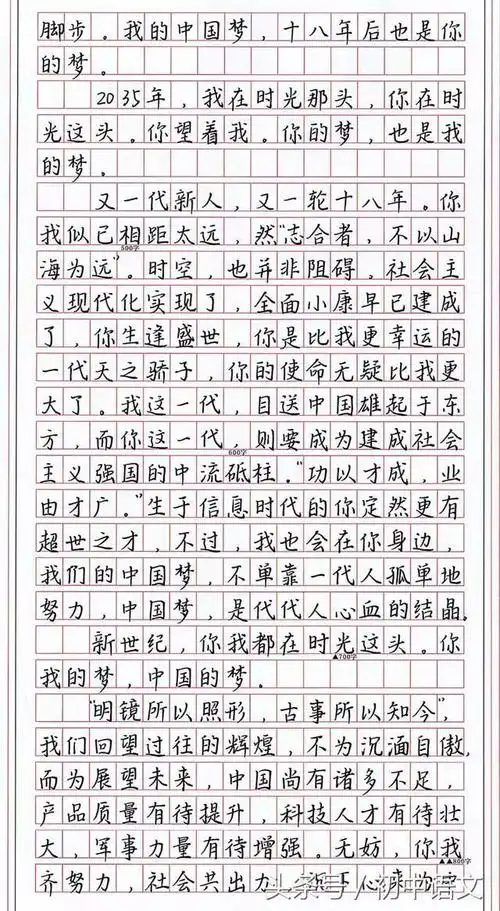 脚步。我的中国梦，十八年后也是你
的梦。
2035年，我在时光那头，你在时
光这头。你望着我。你的梦，也是我
的梦。
又一代新人，又一轮十八年。你
我似已相距太远，然“志合者，不以山
500字
海为远”。时空，也并非阻碍，社会主
义现代化实现了，全面小康早已建成
了，你生逢盛世，你是比我更幸运的
一代天之骄子，你的使命无疑比我更
大了。我这一代，目送中国雄起于东
方，而你这一代，则要成为建成社会
600字
主义强国的中流砥柱。“功以才成，业
由才广。”生于信息时代的你定然更有
超世之才，不过，我也会在你身边，
我们的中国梦，不单靠一代人孤单地
努力，中国梦，是代代人心血的结晶。
新世纪，你我都在时光这头。你
▲700字
我的梦，中国的梦。
“明镜所以照形，古事所以知今”，
我们回望过往的辉煌，不为沉湎自傲，
而为展望未来，中国尚有诸多不足，
产品质量有待提升，科技人才有待壮
大，军事力量有待增强。无妨，你我
▲▲800字
齐努力，社会共出力
头条号/初中语文